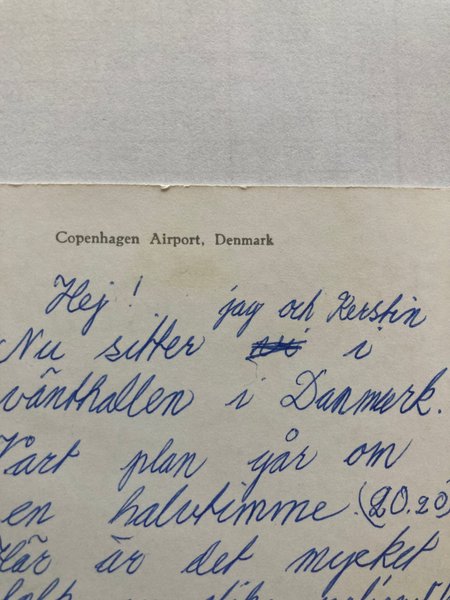 Copenhagen Airport, Denmark
Hej! jag och Kerstin
Nu sitter i
vänthallen i Danmark.
Vårt plan går om
en halvtimme. (20.20)
Här är det mycket
folk